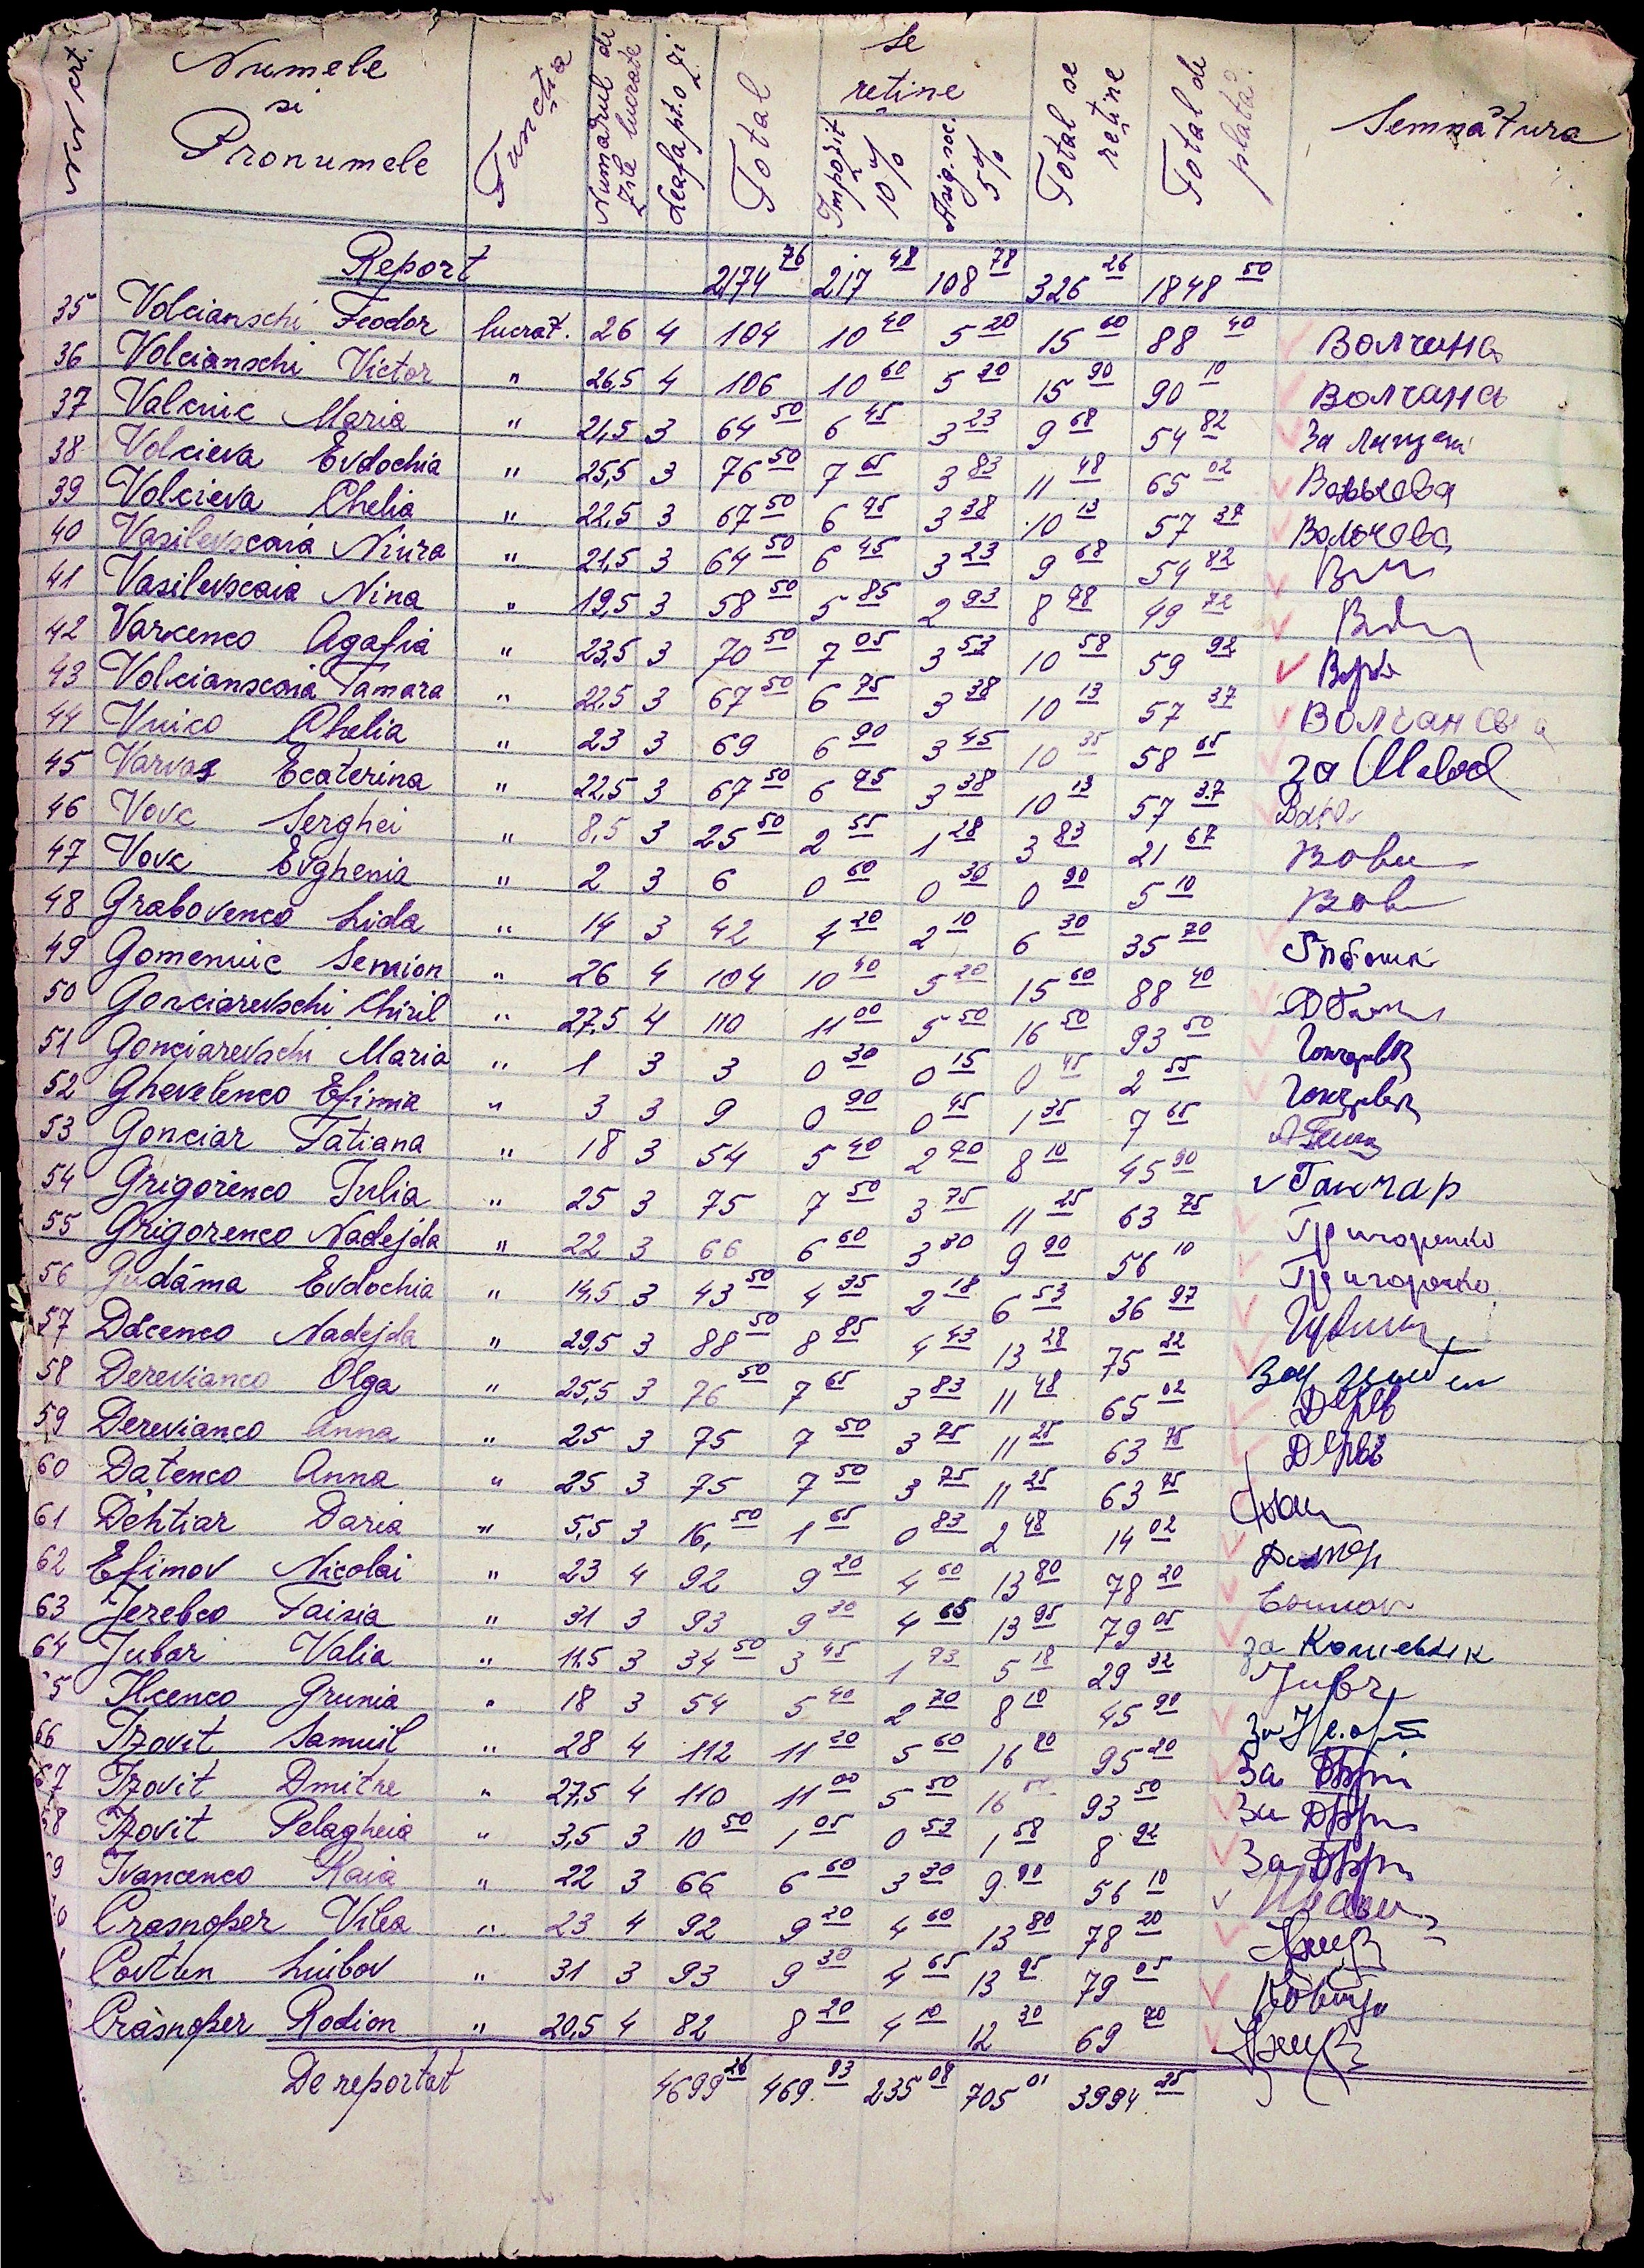 Num. crt.
Numele si Pronumele
Funcția
Numărul de zile lucrate
Leafa pt. o zi
Total
Se reține
Impozit 10%
Asig. soc. 5%
Total se reține
Total de plată
Semnătura
Report 2174 76 217 48 108 78 326 26 1848 50
35 Volcianschi Feodor lucrat. 26 4 104 10 40 5 20 15 60 88 40 Волчана
36 Volcianschi Victor " 26,5 4 106 10 60 5 30 15 90 90 10 Волчана
37 Valcnic Maria " 21,5 3 64 50 6 45 3 23 9 68 54 82 За
38 Volcieva Evdochia " 25,5 3 76 50 7 65 3 83 11 48 65 02 Вольчева
39 Volcieva Chelia " 22,5 3 67 50 6 75 3 38 10 13 57 37 Вольчева
40 Vasilevscaia Niura " 21,5 3 64 50 6 45 3 23 9 68 54 82
41 Vasilevscaia Nina " 19,5 3 58 50 5 85 2 93 8 78 49 72
42 Varcenco Agafia " 23,5 3 70 50 7 05 3 53 10 58 59 92
43 Volcianscaia Tamara " 22,5 3 67 50 6 75 3 38 10 13 57 37
44 Vnico Chelia " 23 3 69 6 90 3 45 10 35 58 65 за
45 Varvas Ecaterina " 22,5 3 67 50 6 75 3 38 10 13 57 37
46 Vovc Serghei " 8,5 3 25 50 2 55 1 28 3 83 21 67
47 Vovc Evghenia " 2 3 6 0 60 0 30 0 90 5 10
48 Grabovenco Lida " 14 3 42 4 20 2 10 6 30 35 70
49 Gomeniuc Semion " 26 4 104 10 40 5 20 15 60 88 40
50 Gonciarevschi Chiril " 27,5 4 110 11 00 5 50 16 50 93 50
51 Gonciarevschi Maria " 1 3 3 0 30 0 15 0 45 2 55
52 Ghevelenco Efimia " 3 3 9 0 90 0 45 1 35 7 65
53 Gonciar Tatiana " 18 3 54 5 40 2 70 8 10 45 90 Гончар
54 Grigorenco Iulia " 25 3 75 7 50 3 75 11 25 63 75 Григоренко
55 Grigorenco Nadejda " 22 3 66 6 60 3 30 9 90 56 10 Григоренко
56 Gudáma Evdochia " 14,5 3 43 50 4 35 2 18 6 53 36 97
57 Dacenco Nadejda " 29,5 3 88 50 8 85 4 43 13 28 75 22
58 Derevianco Olga " 25,5 3 76 50 7 65 3 83 11 48 65 02
59 Derevianco Anna " 25 3 75 7 50 3 75 11 25 63 75
60 Datenco Anna " 25 3 75 7 50 3 75 11 25 63 75
61 Dehtiar Daria " 5,5 3 16, 50 1 65 0 83 2 48 14 02
62 Efimov Nicolai " 23 4 92 9 20 4 60 13 80 78 20
63 Jerebco Taisia " 31 3 93 9 30 4 65 13 95 79 05 за
64 Jubar Valia " 11,5 3 34 50 3 45 1 73 5 18 29 32
5 Ilcenco Grunia " 18 3 54 5 40 2 70 8 10 45 90 За
66 Izovit Samuil " 28 4 112 11 20 5 60 16 80 95 20 За
67 Izovit Dmitre " 27,5 4 110 11 00 5 50 16 50 93 50 За
68 Izovit Pelagheia " 3,5 3 10 50 1 05 0 53 1 58 8 92 За
69 Ivancenco Raia " 22 3 66 6 60 3 30 9 90 56 10
70 Crasnoper Vilea " 23 4 92 9 20 4 60 13 80 78 20
Covtun Liubov " 31 3 93 9 30 4 65 13 95 79 05
Crasnoper Rodion " 20,5 4 82 8 20 4 10 12 30 69 70
De reportat 4699 26 469 93 235 08 705 01 3994 25